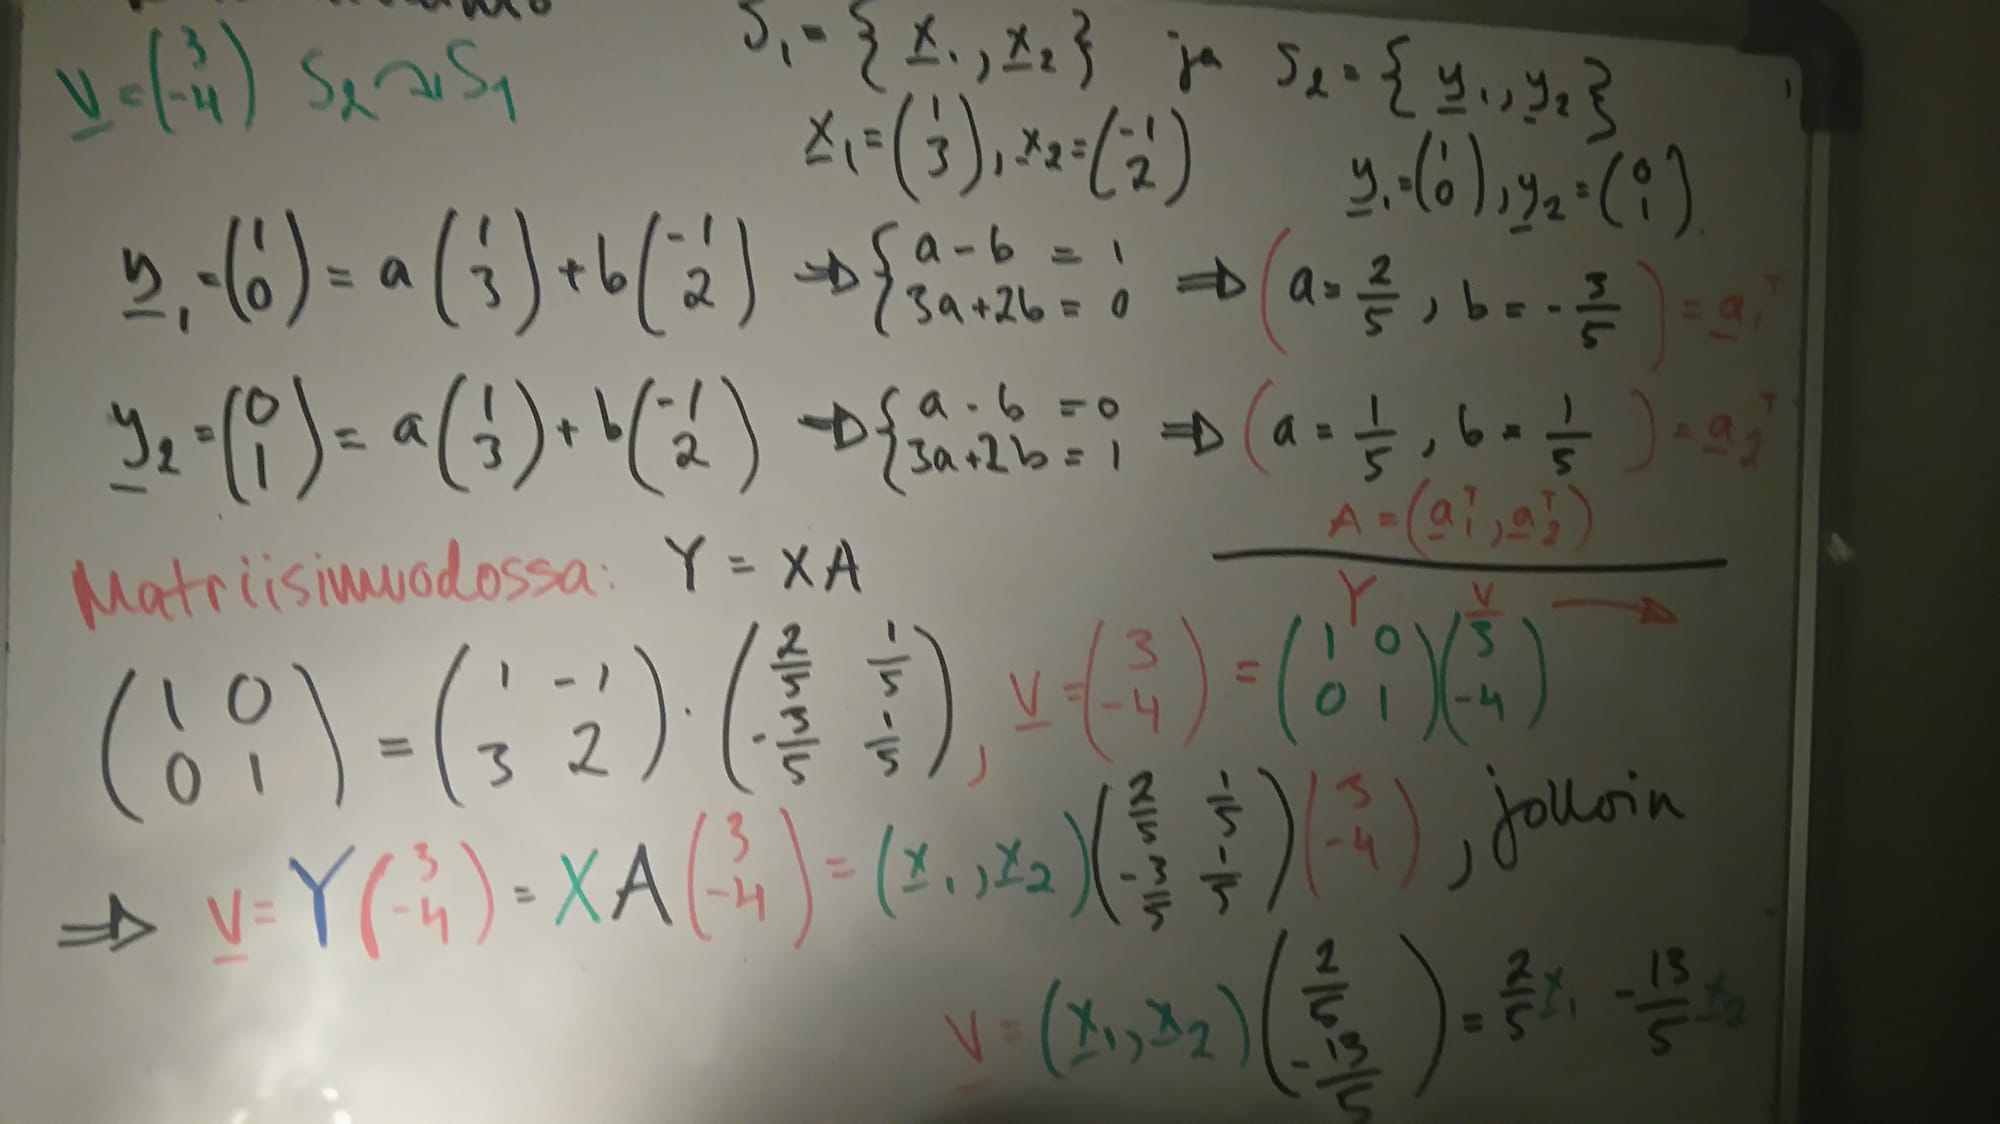 v = (3 -4) S2 ↷ S1
S1 = { x1, x2 } ja S2 = { y1, y2 }
x1 = (1 3), x2 = (-1 2)
y1 = (1 0), y2 = (0 1).
y1 = (1 0) = a (1 3) + b (-1 2) ⇒ { a - b = 1 3a + 2b = 0 ⇒ ( a = 2/5, b = - 3/5 ) = a1^T
y2 = (0 1) = a (1 3) + b (-1 2) ⇒ { a - b = 0 3a + 2b = 1 ⇒ ( a = 1/5, b = 1/5 ) = a2^T
A = (a1^T, a2^T)
Matriisimuodossa: Y = XA
Y v →
(1 0 0 1) = (1 -1 3 2) · (2/5 1/5 -3/5 1/5), v = (3 -4) = (1 0 0 1)(3 -4)
⇒ v = Y (3 -4) = XA (3 -4) = (x1, x2)(2/5 1/5 -3/5 1/5)(3 -4), jolloin
v = (x1, x2)(2/5 -13/5) = 2/5 x1 - 13/5 x2